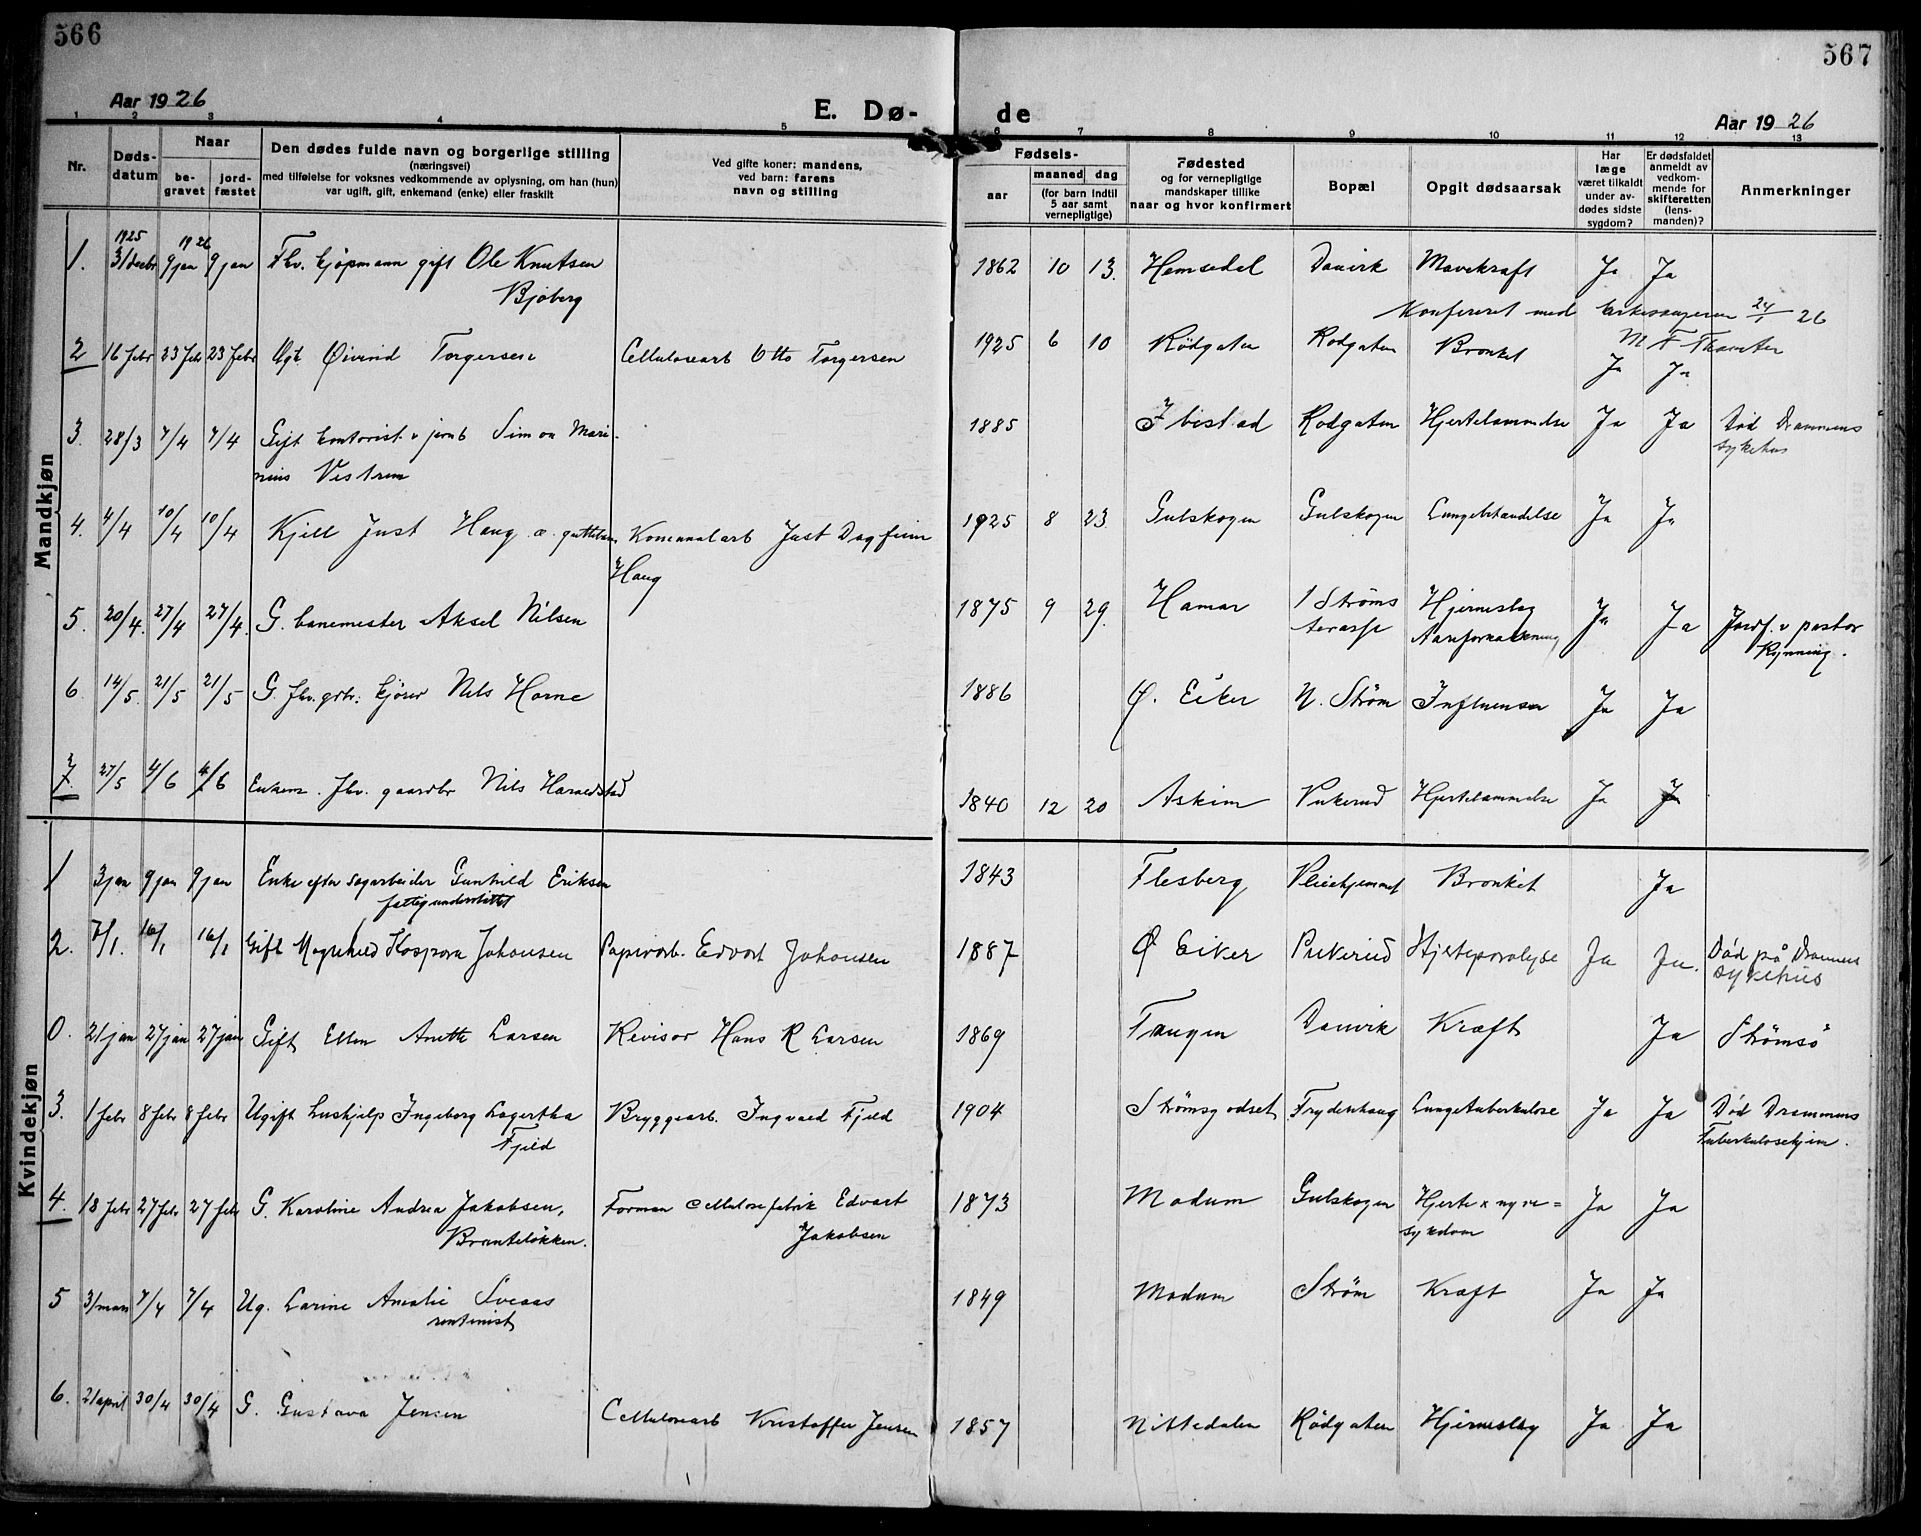 566
567
Aar 1926
E. Dø-
de
Aar 1926
1 2 3 4 5 6 7 8 9 10 11 12 13
Nr.
Døds-
datum
Naar
be-
gravet
jord-
fæstet
Den dødes fulde navn og borgerlige stilling
(næringsvei)
med tilføielse for voksnes vedkommende av oplysning, om han (hun)
var ugift, gift, enkemand (enke) eller fraskilt
Ved gifte koner: mandens,
ved barn: farens
navn og stilling
Fødsels-
aar
maaned dag
(for barn indtil
5 aar samt
vernepligtige)
Fødested
og for vernepligtige
mandskaper tillike
naar og hvor konfirmert
Bopæl
Opgit dødsaarsak
Har
læge
været tilkaldt
under av-
dødes sidste
sygdom?
Er dødsfaldet
anmeldt av
vedkom-
mende for
skifteretten
(lens-
manden)?
Anmerkninger
Mandkjøn
1925 1926
1. 31 decbr 9 jan 9 jan Fhv. kjøpmann gift Ole Knutsen 1862 10 13. Hemsedal Danvik Mavekræft Ja Ja
Bjøberg
Konfereret med kirkesangeren 24/1 26
2 16 febr 23 febr 23 febr Ugt. Øivind Torgersen Cellulosearb Otto Torgersen 1925 6 10 Rødgaten Rødgaten Bronkit Ja Ja
3. 28/3 7/4 7/4 Gift kontorist v jernb Simon Mari- 1885 Ibestad Rødgaten Hjertelammelse Ja Ja Død Drammens
nius Vestrem sykehus
4. 4/4 10/4 10/4 Kjell Just Haug Just Dagfinn 1925 8 23. Gulskogen Gulskogen Lungebetændelse Ja Ja
Haug
5. 20/4. 27/4 27/4. G. banemester Aksel Nilsen 1875 9 29. Hamar Strøms Hjerneslag Ja Ja Jordf. v pastor
terasse Aareforkalkning Rynning.
6. 14/5. 21/5 21/5 G. fhv. grbr. kjører Nils Horne 1886 Ø. Eiker N. Strøm Influensa Ja Ja
7. 27/5 4/6 4/6 Enkem. fhv. gaardbr Nils Haraldstad 1840 12 20 Askim Pukerud Hjertelammelse Ja Ja
Kvindekjøn
1 3 jan 9 jan 9 jan Enke efter sagarbeider Gunhild Eriksen 1843 Flesberg Pleiehjemmet Bronkit Ja
fattigunderstøttet
2. 7/1. 16/1 16/1 Gift Magnhild Kaspara Johansen Papirarb. Edvart Johansen 1887 Ø Eiker Pukerud Hjerteparalyse Ja Ja. Død på Drammens
sykehus
0. 21 jan 27 jan 27 jan Gift Ellen Anette Larsen Revisor Hans R Larsen 1869 Tangen Danvik Kræft Ja Strømsø
3. 1 febr 8 febr 8 febr Ugift hushjelp Ingeborg Lagertha Bryggearb. Ingvald Fjeld 1904 Strømsgodset Frydenhaug Lungetuberkulose Ja Ja Død Drammens
Fjeld Tuberkulosehjem.
4. 18 febr 27 febr 27 febr G. Karoline Andrea Jakobsen, Forman cellulosefabrik Edvart 1873 Modum Gulskogen Hjerte x nyre= Ja Ja
Brænteløkken. Jakobsen sykdom
5 31 mars 7/4 7/4 Ug. Larine Amalie Sveaas 1849 Modum Strøm Kræft Ja Ja
rentenist
6. 21 april 30/4 30/4 G. Gustava Jensen Cellulosearb Kristoffer Jensen 1857 Nittedalen Rødgaten Hjerneslag Ja Ja